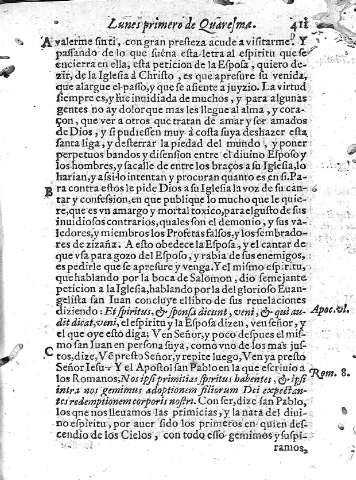 Lunes primero de Quaresma. 411
A valerme sin ti, con gran presteza acude a visitarme. Y
passando de lo que suena esta letra al espiritu que se
encierra en ella, esta peticion de la Esposa, quiero de-
zir, de la Iglesia à Christo, es que apresure su venida,
que alargue el passo, y que se asiente a juyzio. La virtud
siempre es, y fue inuidiada de muchos, y para algunas
gentes no ay dolor que mas les llegue al alma, y cora-
çon, que ver a otros que tratan de amar y ser amados
de Dios, y si pudiessen muy à costa suya deshazer esta
santa liga, y desterrar la piedad del mundo, y poner
perpetuos bandos y disension entre el diuino Esposo y
los hombres, y sacalle de entre los braços a su Iglesia, lo
harian, y assi lo intentan y procuran quanto es en si. Pa
B ra contra estos le pide Dios a su Iglesia la voz de su can-
tar y confession, en que publique lo mucho que le quie-
re, que es vn amargo y mortal toxico, para el gusto de sus
inuidiosos contrarios, quales son el demonio, y sus va-
ledores, y miembros los Profetas falsos, y los sembrado-
res de zizaña. A esto obedece la Esposa, y el cantar de
que vsa para gozo del Esposo, y rabia de sus enemigos,
es pedirle que se apresure y venga. Y el mismo espiritu,
que hablando por la boca de Salomon, dio semejante
peticion a la Iglesia, hablando por la del glorioso Euan-
gelista san Iuan concluye el libro de sus reuelaciones
diziendo: Et spiritus, & sponsa dicunt, veni, & qui au-
dit dicat, veni, el espiritu y la Esposa dizen, ven señor, y
el que oye esto diga; Ven Señor, y poco despues el mis-
mo san Iuan en persona suya, como vno de los mas jus-
C tos, dize, Vè presto Señor, y repite luego, Ven ya presto
Señor Iesu. Y el Apostol san Pablo en la que escriuio a
los Romanos, Nos ipsi primitias spiritus habentes, & ipsi
intra nos gemimus adoptionem filiorum Dei expectan-
tes redemptionem corporis nostri. Con ser, dize san Pablo,
los que nos lleuamos las primicias, y la nata del diui-
no espiritu, por auer sido los primeros en quien des-
cendio de los Cielos, con todo esso gemimos y suspi-
ramos,
Apoc. vl.
Rom. 8.